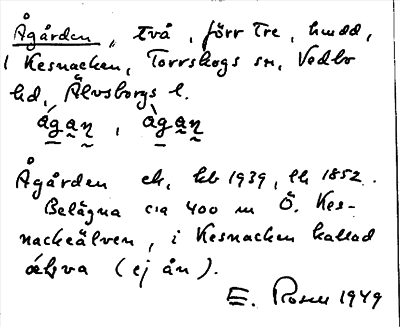 Ågården, två, förr tre, hmdd,
i Kesnacken, Torrskogs sn, Vedbo
hd, Älvsborgs l.
ágan, àgan
Ågården ek, kb 1939, lk 1852.
Belägna c:a 400 m Ö. Kes-
nackeälven, i Kesnacken kallad
(ej ån).
E. Rosell 1949